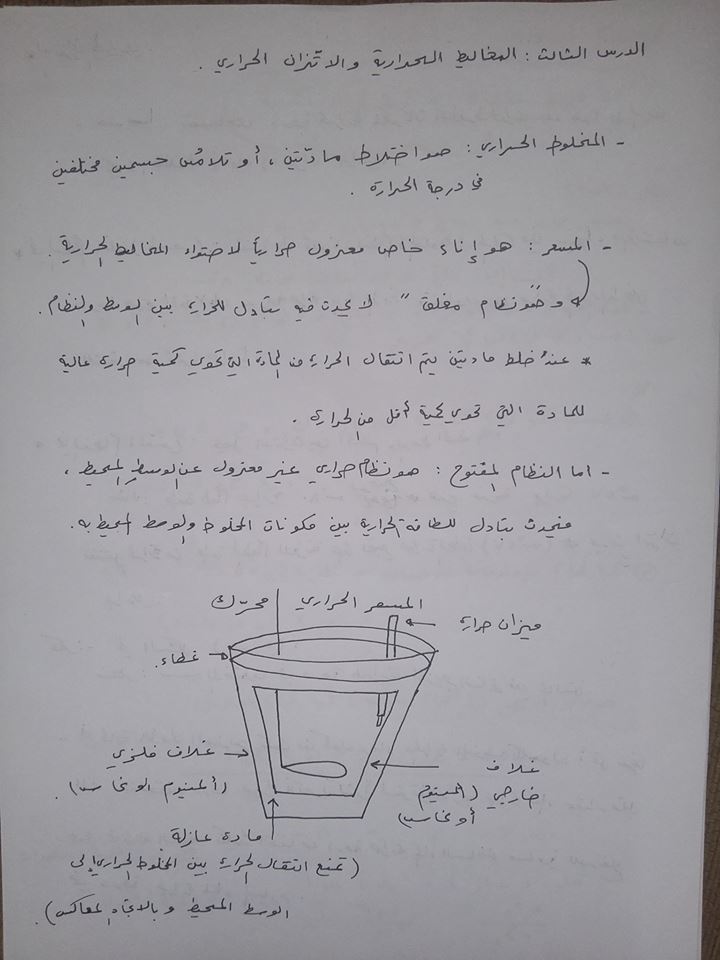 الدرس الثالث : المخاليط الحرارية والاتزان الحراري .
- المخلوط الحراري : هو اختلاط مادّتين ، أو تلامُس جسمين مختلفين
في درجة الحرارة .
- المسعر : هو إناء خاص معزول حرارياً لاحتواء المخاليط الحرارية .
وهو نظام مغلق " لا يحدث فيه تبادل للحرارة بين الوسط والنظام .
* عند خلط مادتين يتم انتقال الحرارة من المادة التي تحوي كمية حرارة عالية
للمادة التي تحوي كمية أقل من الحرارة .
- اما النظام المفتوح : هو نظام حراري غير معزول عن الوسط المحيط ،
فيحدث تبادل للطاقة الحرارية بين مكونات المخلوط والوسط المحيط به .
المسعر الحراري
محرّك
ميزان حرارة
غطاء .
غلاف فلزي
(ألمنيوم او نحاس)
غلاف
خارجي (المنيوم
أو نحاس)
مادة عازلة
(تمنع انتقال الحرارة بين المخلوط الحراري إلى
الوسط المحيط وبالاتجاه المعاكس)